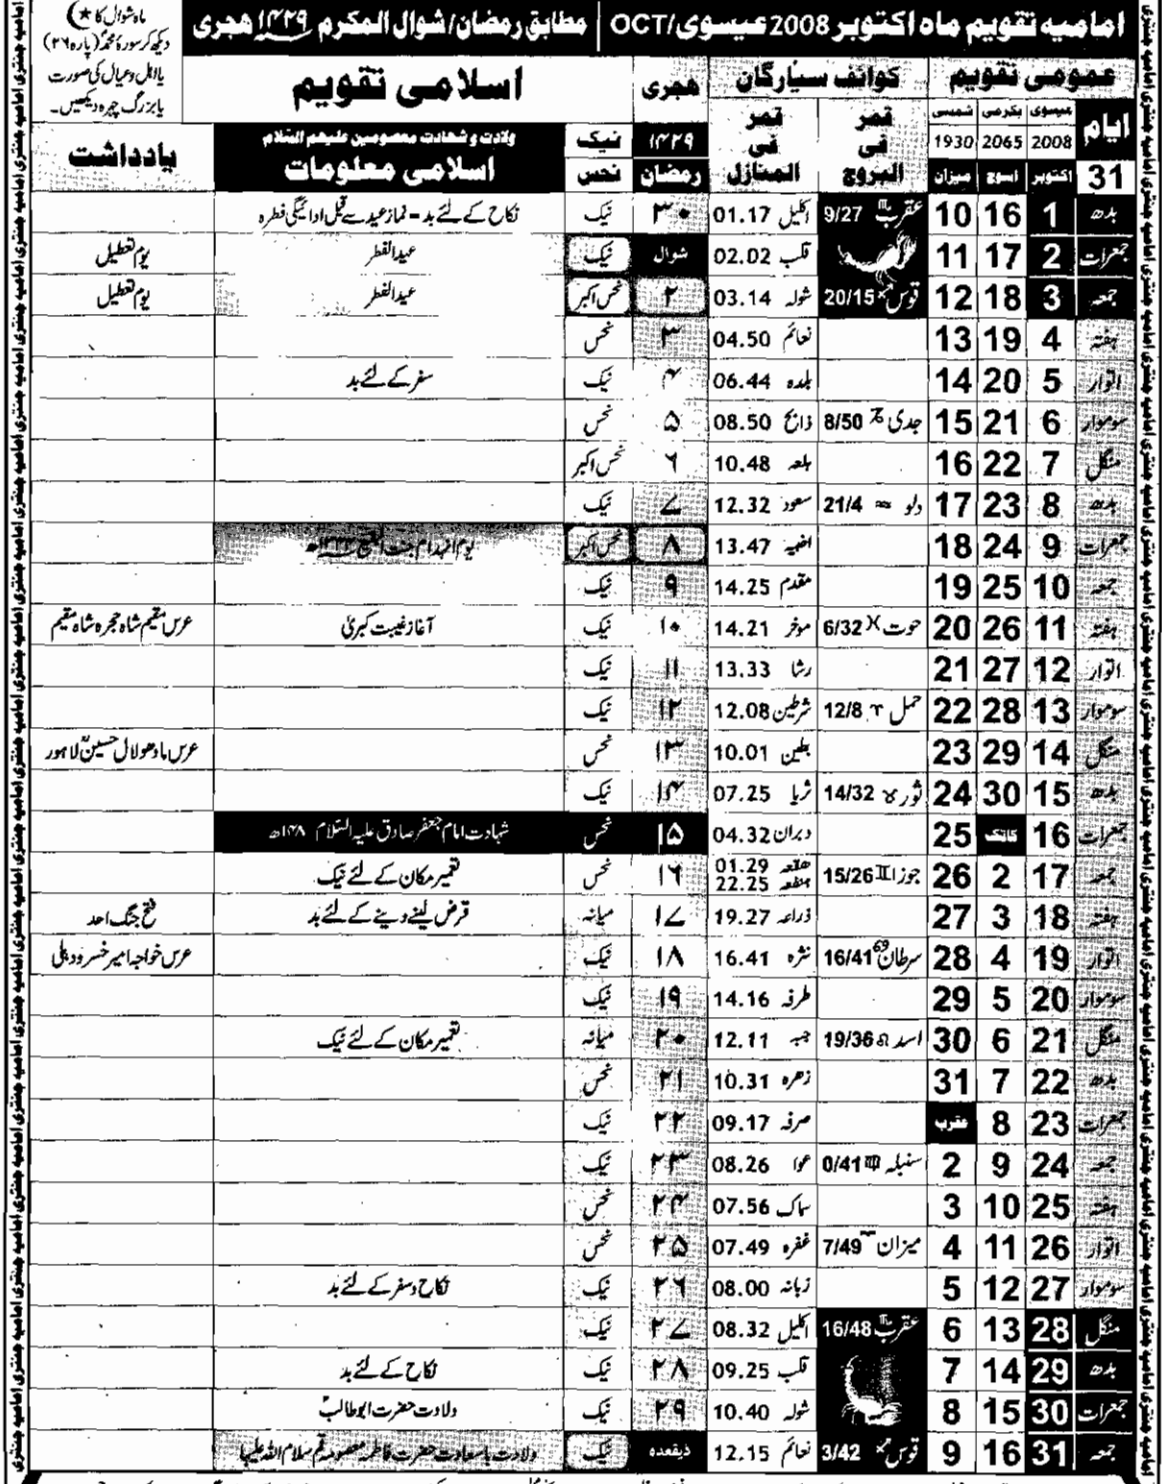 امامیہ تقویم ماہ اکتوبر 2008 عیسوی/OCT | مطابق رمضان/شوال المکرم ۱۴۲۹ ہجری
ماہ شوال کا
دیکھ کر سورۃ محمدؐ (پارہ ۲۶)
یا اہل و عیال کی صورت
یا بزرگ چہرہ دیکھیں۔
عمومی تقویم کوائف سیارگان ہجری اسلامی تقویم
ایام عیسوی بکرمی شمسی قمر فی البروج قمر فی المنازل ۱۴۲۹ نیک ولادت و شہادت معصومین علیہم السلام یادداشت
2008 2065 1930
31 اکتوبر اسوج میزان رمضان نحس اسلامی معلومات
بدھ 1 16 10 عقرب 9/27 اکلیل 01.17 ۳۰ نیک نکاح کے لئے بد = نماز عید سے قبل ادائیگی فطرہ
جمعرات 2 17 11 قلب 02.02 شوال نیک عید الفطر یوم تعطیل
جمعہ 3 18 12 قوس 20/15 شولہ 03.14 ۲ نحس اکبر عید الفطر یوم تعطیل
ہفتہ 4 19 13 نعائم 04.50 ۳ نحس
اتوار 5 20 14 بلدہ 06.44 ۴ نیک سفر کے لئے بد
سوموار 6 21 15 جدی 8/50 ذابح 08.50 ۵ نحس
منگل 7 22 16 بلعہ 10.48 ۶ نحس اکبر
بدھ 8 23 17 دلو 21/4 سعود 12.32 ۷ نیک
جمعرات 9 24 18 اخبیہ 13.47 ۸ نحس اکبر یوم انہدام جنت البقیع ۱۳۴۴ھ
جمعہ 10 25 19 مقدم 14.25 ۹ نیک
ہفتہ 11 26 20 حوت 6/32 موخر 14.21 ۱۰ نیک آغاز غیبت کبریٰ عرس مقیم شاہ حجرہ شاہ مقیم
اتوار 12 27 21 رشا 13.33 ۱۱ نیک
سوموار 13 28 22 حمل ♈ 12/8 شرطین 12.08 ۱۲ نیک
منگل 14 29 23 بطین 10.01 ۱۳ نحس عرس مادھو لال حسینؒ لاہور
بدھ 15 30 24 ثور ♉ 14/32 ثریا 07.25 ۱۴ نیک
جمعرات 16 کاتک 25 دبران 04.32 ۱۵ نحس شہادت امام جعفر صادق علیہ السلام ۱۴۸ھ
جمعہ 17 2 26 جوزا ♊ 15/26 ھقعہ 01.29 ھنعہ 22.25 ۱۶ نحس تعمیر مکان کے لئے نیک
ہفتہ 18 3 27 ذراعہ 19.27 ۱۷ میانہ قرض لینے دینے کے لئے بد فتح جنگ احد
اتوار 19 4 28 سرطان 16/41 نثرہ 16.41 ۱۸ نیک عرس خواجہ امیر خسرو دہلی
سوموار 20 5 29 طرفہ 14.16 ۱۹ نیک
منگل 21 6 30 اسد ♌ 19/36 جبہ 12.11 ۲۰ میانہ تعمیر مکان کے لئے نیک
بدھ 22 7 31 زھرہ 10.31 ۲۱ نحس
جمعرات 23 8 عقرب صرفہ 09.17 ۲۲ نیک
جمعہ 24 9 2 سنبلہ ♍ 0/41 عوا 08.26 ۲۳ نیک
ہفتہ 25 10 3 سماک 07.56 ۲۴ نحس
اتوار 26 11 4 میزان 7/49 غفرہ 07.49 ۲۵ نحس
سوموار 27 12 5 زبانہ 08.00 ۲۶ نیک نکاح و سفر کے لئے بد
منگل 28 13 6 عقرب 16/48 اکلیل 08.32 ۲۷ نیک
بدھ 29 14 7 قلب 09.25 ۲۸ نیک نکاح کے لئے بد
جمعرات 30 15 8 شولہ 10.40 ۲۹ نیک ولادت حضرت ابو طالبؑ
جمعہ 31 16 9 قوس 3/42 نعائم 12.15 ذیقعدہ نیک ولادت باسعادت حضرت فاطمہ معصومہ قم سلام اللہ علیہا